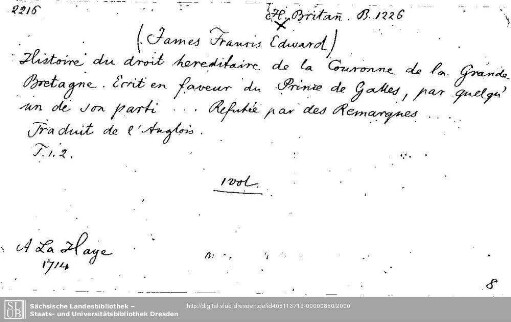 2216
H. Britan. B. 1226
(James Francis Edward)
Histoire du droit hereditaire de la Couronne de la Grande
Bretagne. Ecrit en faveur du Prince de Galles, par quelqu'
un de son parti ... Refutée par des Remarques ...
Traduit de l'Anglois.
T. 1. 2.
1 vol.
A La Haye
1714
8
Sächsische Landesbibliothek –
Staats- und Universitätsbibliothek Dresden